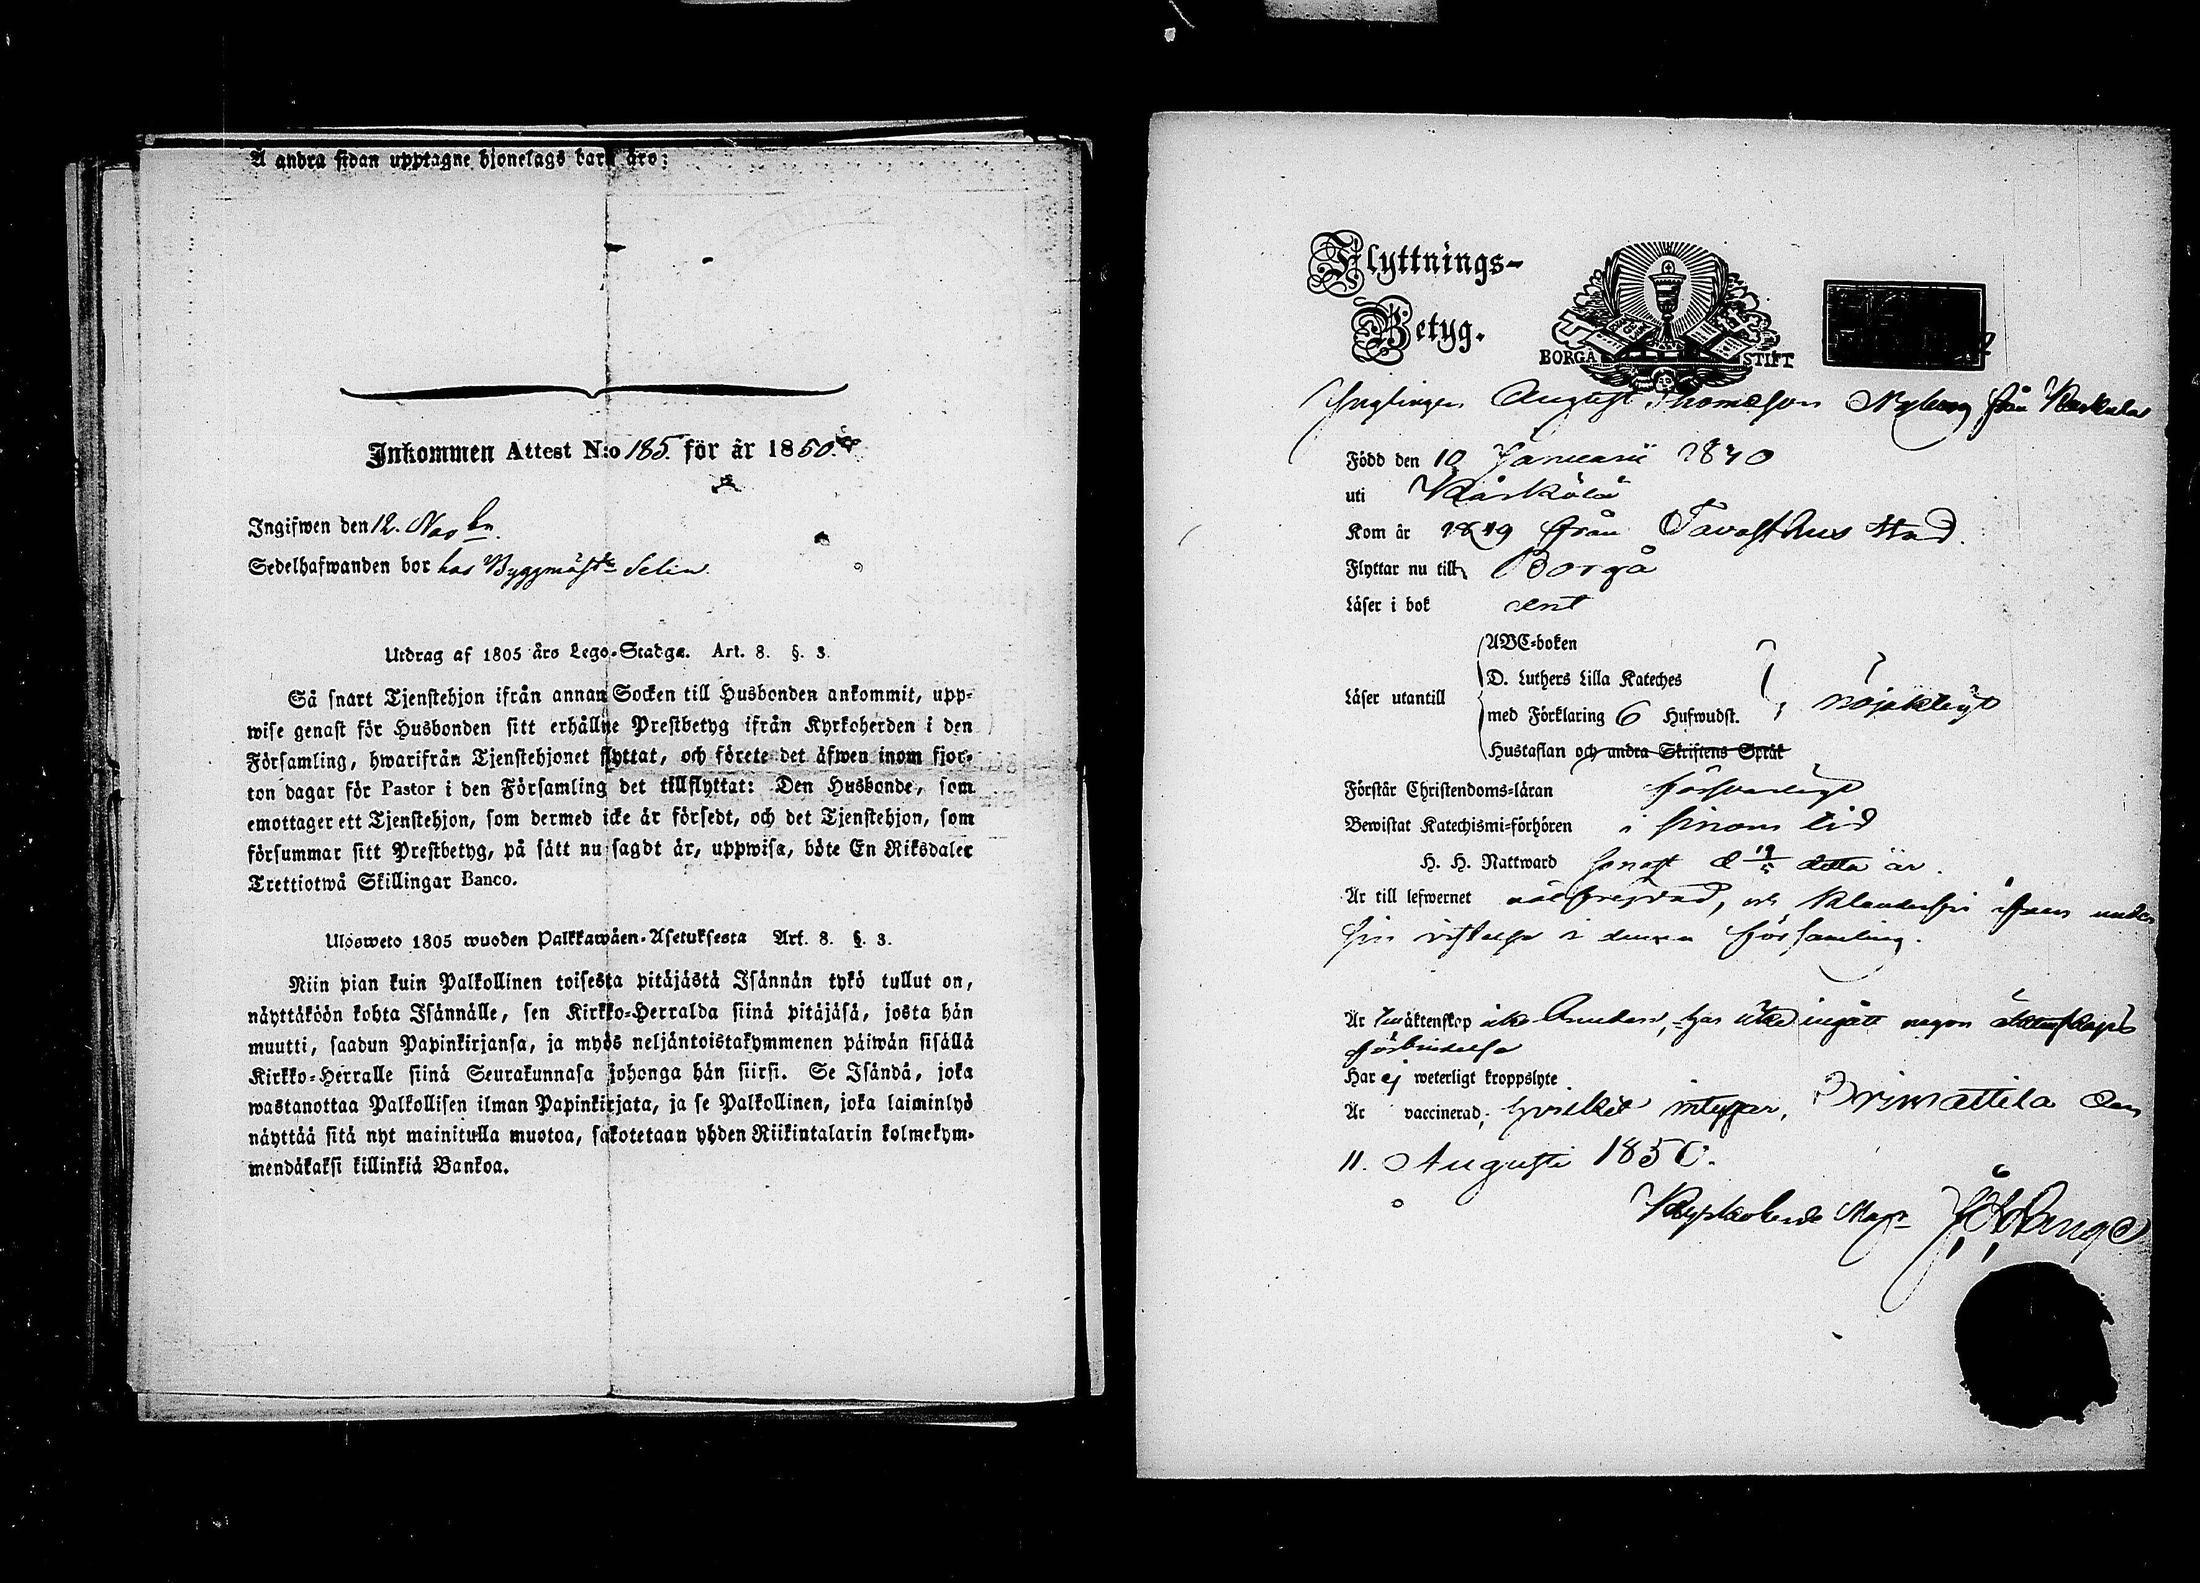 Å andra sidan upptagne hjonelags barn äro:
Inkommen Attest N:o 185. för år 1850.
Ingifwen den 12. Nov br.
Sedelhafwanden bor hos Byggmäst. Selin.
Utdrag af 1805 års Lego-Stadga. Art. 8. §. 3.
Så snart Tjenstehjon ifrån annan Socken till Husbonden ankommit, upp-
wise genast för Husbonden sitt erhållne Prestbetyg ifrån Kyrkoherden i den
Församling, hwarifrån Tjenstehjonet flyttat, och förete det äfwen inom fjor-
ton dagar för Pastor i den Församling det tillflyttat: Den Husbonde, som
emottager ett Tjenstehjon, som dermed icke är försedt, och det Tjenstehjon, som
försummar sitt Prestbetyg, på sätt nu sagdt är, uppwisa, böte En Riksdaler
Trettiotwå Skillingar Banco.
Ulosweto 1805 wuoden Palkkawäen-Asetuksesta Art. 8. §. 3.
Niin pian kuin Palkollinen toisesta pitäjästä Isännän tykö tullut on,
näyttäköön kohta Isännälle, sen Kirkko-Herralda siinä pitäjäsä, josta hän
muutti, saadun Papinkirjansa, ja myös neljäntoistakymmenen päiwän sisällä
Kirkko-Herralle siinä Seurakunnasa johonga hän siirsi. Se Isändä, joka
wastanottaa Palkollisen ilman Papinkirjata, ja se Palkollinen, joka laiminlyö
näyttää sitä nyt mainitulla muotoa, sakotetaan yhden Riikintalarin kolmekym-
mendäkaksi killinkiä Bankoa.
Flyttnings-
Betyg.
BORGÅ STIFT
Ynglingen August Thomasson Nyberg från Kärkälä
Född den 10 Januarii 1830
uti Kärkölä
Kom år 1849 från Tavasthus stad.
Flyttar nu till Borgå
Läser i bok rent
ABC-boken
D. Luthers Lilla Kateches
Läser utantill med Förklaring 6 Hufwudst. nöjaktligt
Hustaflan och andra Skriftens Språk
Förstår Christendoms-läran försvarligt
Bewistat Katechismi-förhören i sinom tid
H. H. Nattward senast d 19 detta år.
Är till lefwernet välfrejdad, och klanderfri äfven under
sin vistelse i denna församling.
Är i äktenskap icke bunden, har icke ingått någon äktenskaps
förbindelse
Har ej weterligt kroppslyte
Är vaccinerad; hvilket intygar, Orimattila den
11. Augusti 1850.
Kyrkoherde